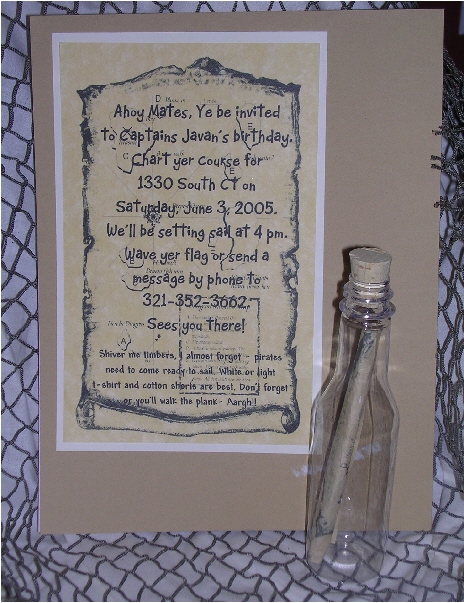 Ahoy Mates, Ye be invited
to Captains Javan's birthday.
Chart yer course for
1330 South Ct on
Saturday, June 3, 2005.
We'll be setting sail at 4 pm.
Wave yer flag or send a
message by phone to
321-352-3662.
Sees you there!
Shiver me timbers, I almost forgot - pirates
need to come ready to sail. White or light
t-shirt and cotton shorts are best. Don't forget
or you'll walk the plank - Aargh!!